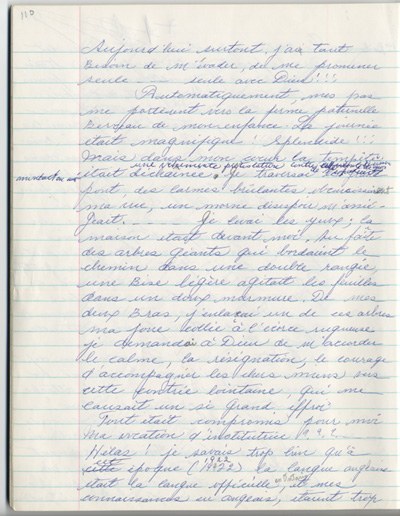 110
Aujourd'hui surtout, j'ai tant
Besoin de m'évader, de me promener
seule --- seule avec Dieu!!!
Automatiquement, mes pas
me portèrent vers la ferme paternelle
Berceau de mon enfance. La journée
était magnifique! Splendide!!!
Mais dans mon cœur la tempête
une véhémente protestation contre
était déchainée. Je traversai le
pont, des larmes brûlantes obscurcissaient
ma vue, un morne désespoir m'assié-
geait. --- Je levai les yeux; la
maison était devant moi, Au faîte
des arbres géants qui bordaient le
chemin dans une double rangée,
une Bise légère agitait les feuilles
dans un doux murmure. De mes
deux Bras, j'enlaçai un de ces arbres
ma joue collée à l'écorce rugueuse
je demandai à Dieu de m'accorder
le calme, la résignation, le courage
d'accompagner les chers miens vers
cette contrée lointaine, qui me
causait un si Grand effroi
Tout était compromis pour moi
Ma vocation d'institutrice ???
Hélas! je savais trop bien qu'à
1922
cette époque (1922) la langue anglaise
était la langue officielle, et mes
connaissances en anglais, étaient trop